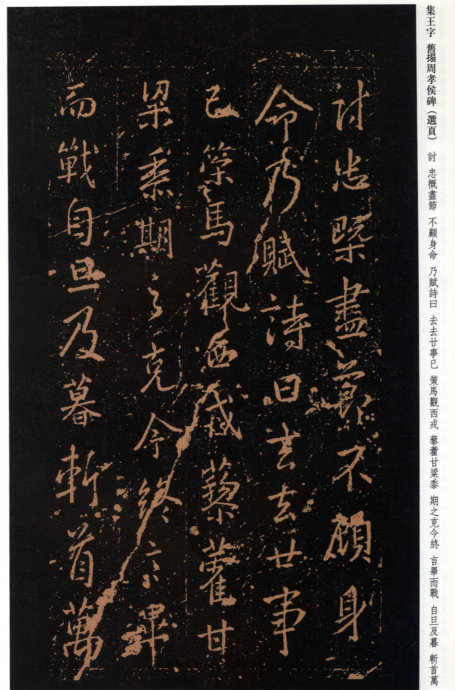 集王字 舊搨周孝侯碑（選頁） 討 忠概盡節 不顧身命 乃賦詩曰 去去廿事已 策馬觀西戎 藜藿甘粱黍 期之克令終 言畢而戰 自旦及暮 斬首萬
討忠槩盡節不顧身
命乃賦詩曰去去廿事
已策馬觀西戎藜藿甘
梁黍期之克令終言畢
而戰自旦及暮斬首萬